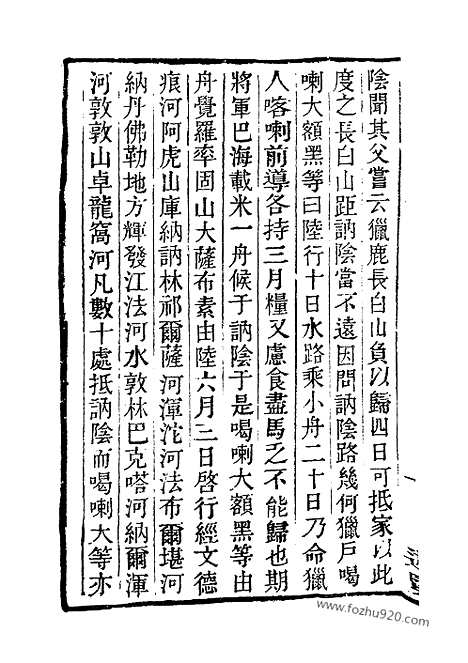 陰聞其父嘗云獵鹿長白山負以歸四日可抵家以此
度之長白山距訥陰當不遠因問訥陰路幾何獵戶喝
喇大額黑等曰陸行十日水路乘小舟二十日乃命獵
人喀喇前導各持三月糧又慮食盡馬乏不能歸也期
將軍巴海載米一舟候于訥陰于是喝喇大額黑等由
舟覺羅率固山大薩布素由陸六月三日啓行經文德
痕河阿虎山庫納訥林祁爾薩河渾沱河法布爾堪河
納丹佛勒地方輝發江法河水敦林巴克嗒河納爾渾
河敦敦山卓龍窩河凡數十處抵訥陰而喝喇大等亦
www.fozhu920.com